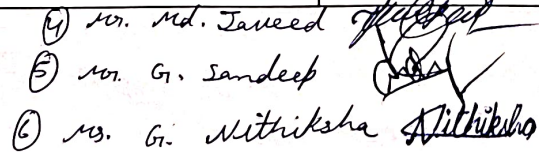 ④ Mr. Md. Javeed
⑤ Mr. G. Sandeep
⑥ Ms. G. Nithiksha Nithiksha